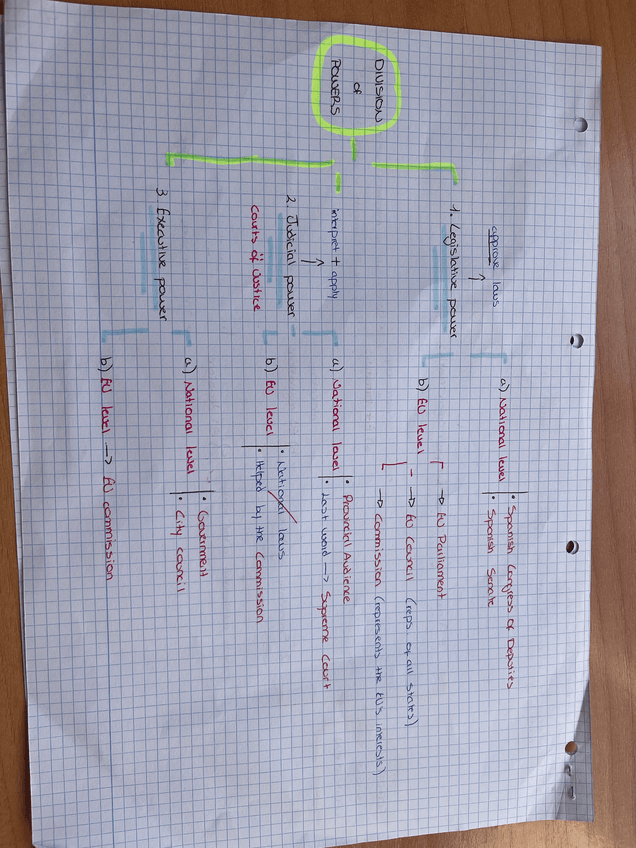 DIVISION
of
POWERS
approve laws
1. Legislative power
a) National level
• Spanish Congress of Deputies
• Spanish Senate
b) EU level
→ EU Parliament
→ EU Council (reps. of all states)
→ Commission (represents the EU's interests)
interpret + apply
2. Judicial power
Courts of Justice
a) National level
• Provincial Audience
• Last word → Supreme Court
b) EU level
• National laws
• Helped by the Commission
3. Executive power
a) National level
• Government
• City council
b) EU level → EU commission